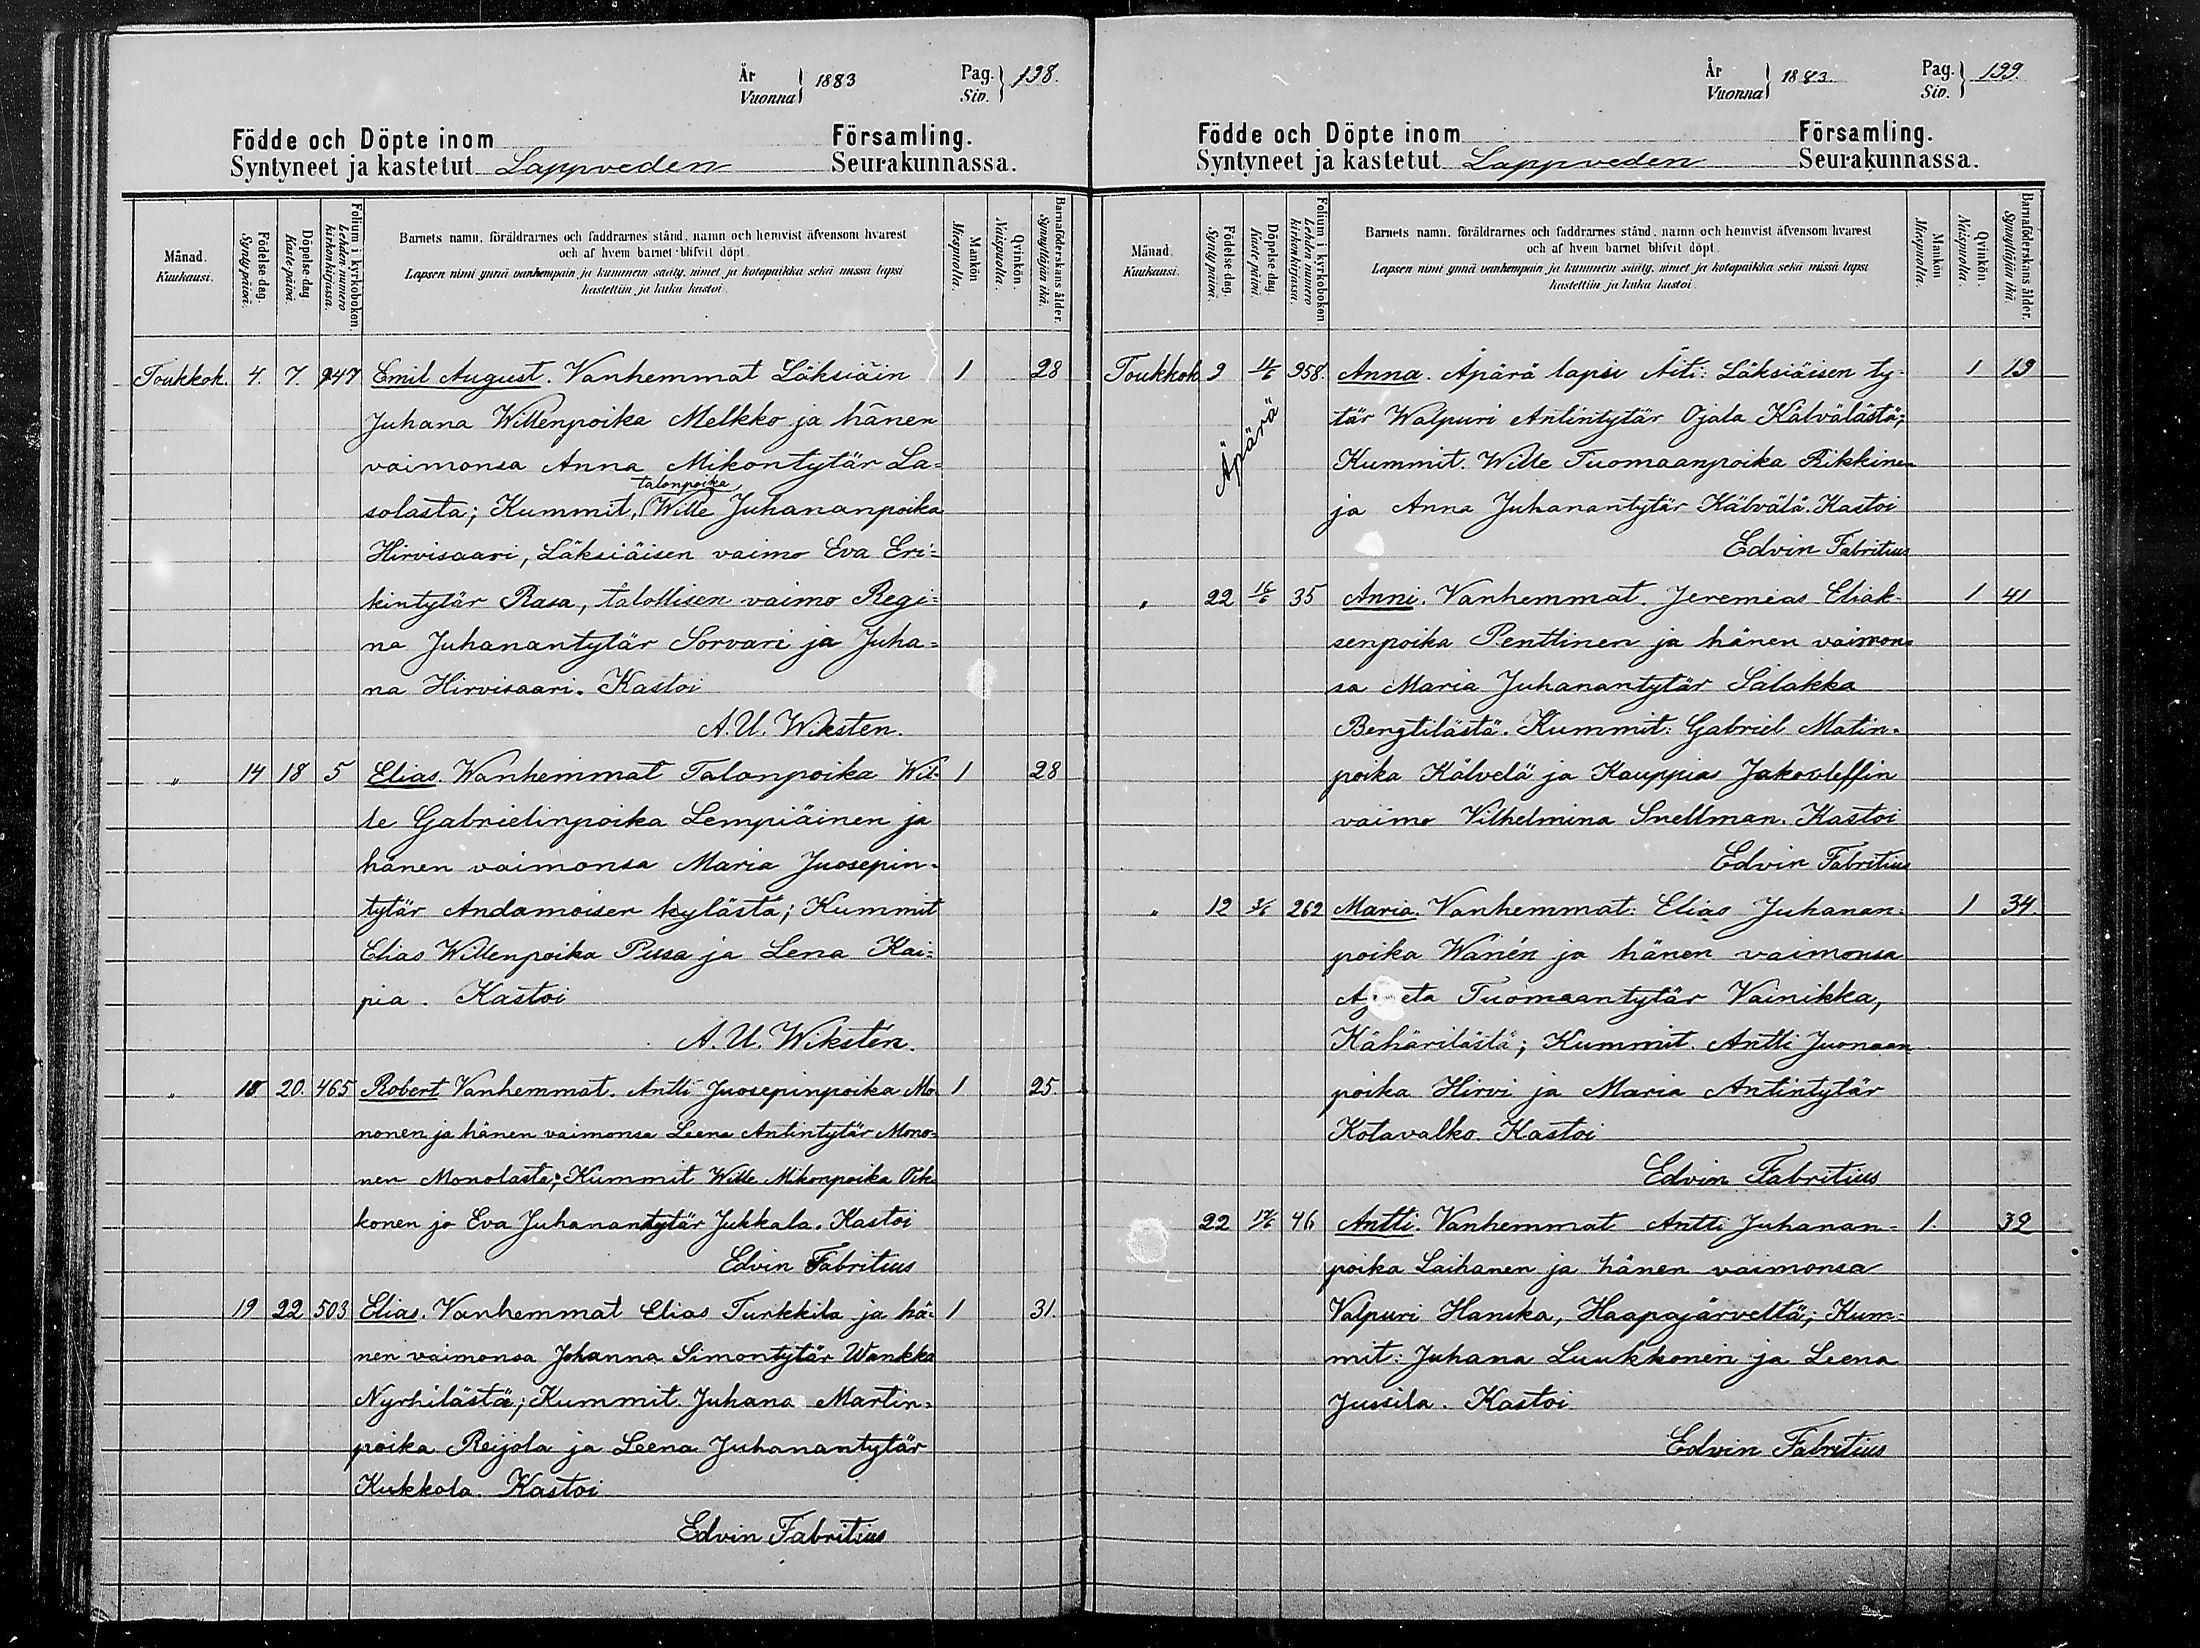 År
Vuonna } 1883 Pag. Siv. } 198.
Födde och Döpte inom Församling.
Syntyneet ja kastetut Lappveden Seurakunnassa.
Månad. Kuukausi.
Födelse-dag. Synty päivä.
Döpelse-dag Kaste päivä.
Folium i kyrkoboken. Lehden numero kirkonkirjassa.
Barnets namn, föräldrarnes och faddrarnes stånd, namn och hemvist äfvensom hvarest
och af hvem barnet blifvit döpt.
Lapsen nimi ynnä vanhempain ja kummein sääty, nimet ja kotopaikka sekä missä lapsi
kastettiin ja kuka kastoi.
Mankön Miespuolia.
Qvinkön. Naispuolia.
Barnaföderskans ålder. Synnyttäjän ikä.
Toukkok. 4. 7. 947 Emil August. Vanhemmat Läksiäin 1 28
Juhana Willenpoika Melkko ja hänen
vaimonsa Anna Mikontytär La=
talonpoika
solasta; Kummit, Wille Juhananpoika
Hirvisaari, Läksiäisen vaimo Eva Eri=
kintytär Rasa, talollisen vaimo Regi=
na Juhanantytär Sorvari ja Juha=
na Hirvisaari. Kastoi
A. U. Wikstén.
" 14 18 5 Elias. Wanhemmat Talonpoika Wil= 1 28
le Gabrielinpoika Lempiäinen ja
hänen vaimonsa Maria Juosepin=
tytär Andamoisen kylästä; Kummit
Elias Willenpoika Pusa ja Lena Kai=
pia. Kastoi
A. U. Wikstén.
" 18 20. 465 Robert Vanhemmat. Antti Juosepinpoika Mo 1 25.
nonen ja hänen vaimonsa Leena Antintytär Mono=
nen Monolasta; Kummit Wille Mikonpoika Oik
konen ja Eva Juhanantytär Jukkala. Kastoi
Edvin Fabritius
19 22 503 Elias. Vanhemmat Elias Turkkila ja hä= 1 31.
nen vaimonsa Johanna Simontytär Wankka
Nyrhilästä; Kummit. Juhana Martin=
poika Reijola ja Leena Juhanantytär
Kukkola. Kastoi
Edvin Fabritius
År
Vuonna } 1883. Pag. Siv. } 199.
Födde och Döpte inom Församling.
Syntyneet ja kastetut Lappveden Seurakunnassa.
Månad. Kuukausi.
Födelse-dag. Synty päivä.
Döpelse-dag. Kaste päivä.
Folium i kyrkoboken Lehden numero kirkonkirjassa.
Barnets namn, föräldrarnes och faddrarnes stånd, namn och hemvist äfvensom hvarest
och af hvem barnet blifvit döpt.
Lapsen nimi ynnä vanhempain ja kummein sääty, nimet ja kotopaikka sekä missä lapsi
kastettiin ja kuka kastoi.
Mankön Miespuolia.
Qvinkön. Naispuolia.
Barnaföderskans ålder. Synnyttäjän ikä.
Toukkok 9 958. Anna. Äpärä lapsi Äiti: Läksiäisen ty- 1 19
Äpärä
tär Walpuri Antintytär Ojala Kälvälästä;
Kummit. Wille Tuomaanpoika Rikkinen
ja Anna Juhanantytär Kälvälä. Kastoi
Edvin Fabritius
" 22 35 Anni. Vanhemmat. Jeremias Eliak- 1 41
senpoika Penttinen ja hänen vaimon-
sa Maria Juhanantytär Salakka
Bengtilästä. Kummit: Gabriel Matin-
poika Kälvelä ja Kauppias Jakovleffin
vaimo Vilhelmina Snellman. Kastoi
Edvin Fabritius
" 12 3/6 262 Maria. Vanhemmat: Elias Juhanan= 1 34.
poika Wänén ja hänen vaimonsa
Tuomaantytär Vainikka,
Kähärilästä; Kummit. Antti Juonaan
poika Hirvi ja Maria Antintytär
Kotavalko. Kastoi
Edvin Fabritius
22 46 Antti. Vanhemmat Antti Juhanan= 1. 32
poika Laihanen ja hänen vaimonsa
Valpuri Hanska, Haapajärveltä; Kum=
mit: Juhana Luukkonen ja Leena
Jussila. Kastoi
Edvin Fabritius